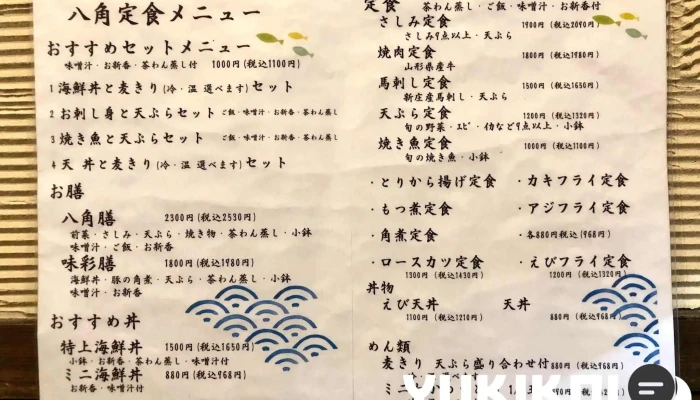 八角定食メニュー
おすすめセットメニュー
味噌汁・お新香・茶わん蒸し付 1000円(税込1100円)
1 海鮮丼と麦きり(冷・温 選べます)セット
2 お刺し身と天ぷらセット ご飯・味噌汁・お新香・茶わん蒸し
3 焼き魚と天ぷらセット ご飯・味噌汁・お新香・茶わん蒸し
4 天丼と麦きり(冷・温 選べます)セット
お膳
八角膳 2300円(税込2530円)
前菜・さしみ・天ぷら・焼き物・茶わん蒸し・小鉢
味噌汁・ご飯・お新香
味彩膳 1800円(税込1980円)
海鮮丼・豚の角煮・天ぷら・茶わん蒸し・小鉢
味噌汁・お新香
おすすめ丼
特上海鮮丼 1500円(税込1650円)
小鉢・お新香・茶わん蒸し・味噌汁付
ミニ海鮮丼 880円(税込968円)
お新香・味噌汁付
定食 茶わん蒸し・ご飯・味噌汁・お新香付
さしみ定食 1900円(税込2090円)
さしみ9点以上・天ぷら
焼肉定食 1800円(税込1980円)
山形県産牛
馬刺し定食 1500円(税込1650円)
新庄産馬刺し・天ぷら
天ぷら定食 1200円(税込1320円)
旬の野菜・エビ・イカなど9点以上・小鉢
焼き魚定食 1000円(税込1100円)
旬の焼き魚・小鉢
・とりから揚げ定食 ・カキフライ定食
・もつ煮定食 ・アジフライ定食
・角煮定食 ・各880円(税込968円)
・ロースカツ定食 ・えびフライ定食
1300円(税込1430円) 1200円(税込1320円)
丼物
えび天丼 天丼
1100円(税込1210円) 880円(税込968円)
めん類
麦きり 天ぷら盛り合わせ付 880円(税込968円)
ミニ
YUKIKO